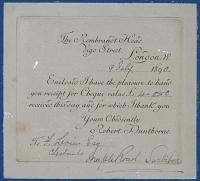 The Rembrandt Head,
Vigo Street,
London, W.
9 July 1890.
Enclosed I have the pleasure to hand
you receipt for Cheque value £
received this day and for which I thank you
Yours Obediently
Robert Dunthorne.
To Esq